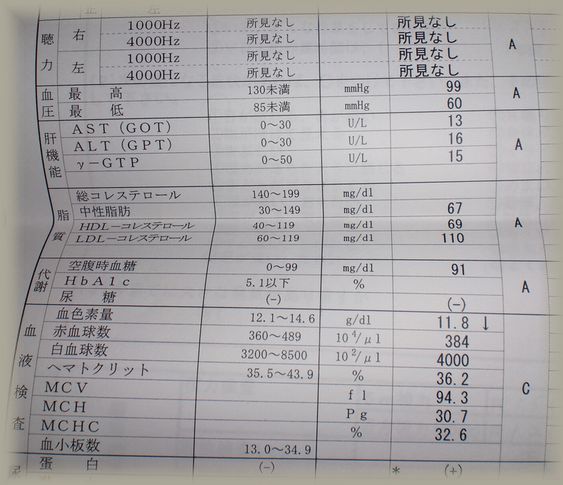 聴力 右 1000Hz 所見なし 所見なし A
4000Hz 所見なし 所見なし
左 1000Hz 所見なし 所見なし
4000Hz 所見なし 所見なし
血圧 最高 130未満 mmHg 99 A
最低 85未満 mmHg 60
肝機能 AST(GOT) 0〜30 U/L 13 A
ALT(GPT) 0〜30 U/L 16
γ-GTP 0〜50 U/L 15
脂質 総コレステロール 140〜199 mg/dl A
中性脂肪 30〜149 mg/dl 67
HDL-コレステロール 40〜119 mg/dl 69
LDL-コレステロール 60〜119 mg/dl 110
代謝 空腹時血糖 0〜99 mg/dl 91 A
HbA1c 5.1以下 %
尿糖 (-) (-)
血液検査 血色素量 12.1〜14.6 g/dl 11.8 ↓ C
赤血球数 360〜489 10⁴/μl 384
白血球数 3200〜8500 10²/μl 4000
ヘマトクリット 35.5〜43.9 % 36.2
MCV fl 94.3
MCH Pg 30.7
MCHC % 32.6
血小板数 13.0〜34.9
蛋白 (-) * (+)